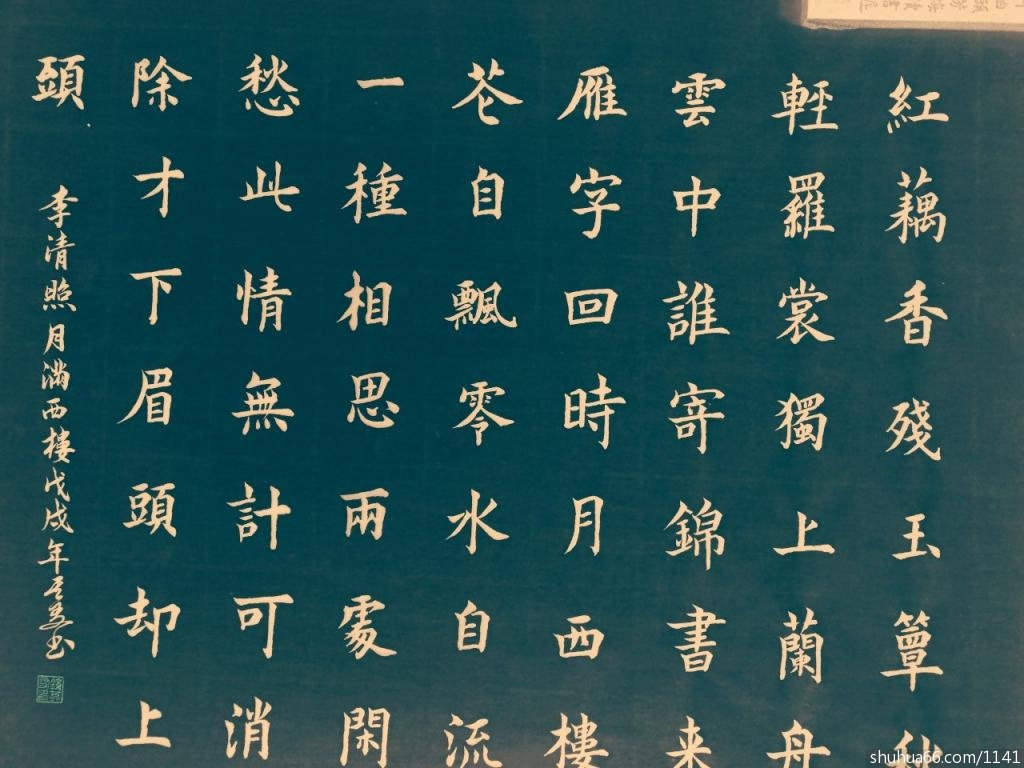 紅藕香殘玉簟秋
輕羅裳獨上蘭舟
雲中誰寄錦書来
雁字回時月西樓
花自飄零水自流
一種相思兩處閑
愁此情無計可消
除才下眉頭却上
頭
李清照月滿西樓戊戌年书
shuhua66.com/1141